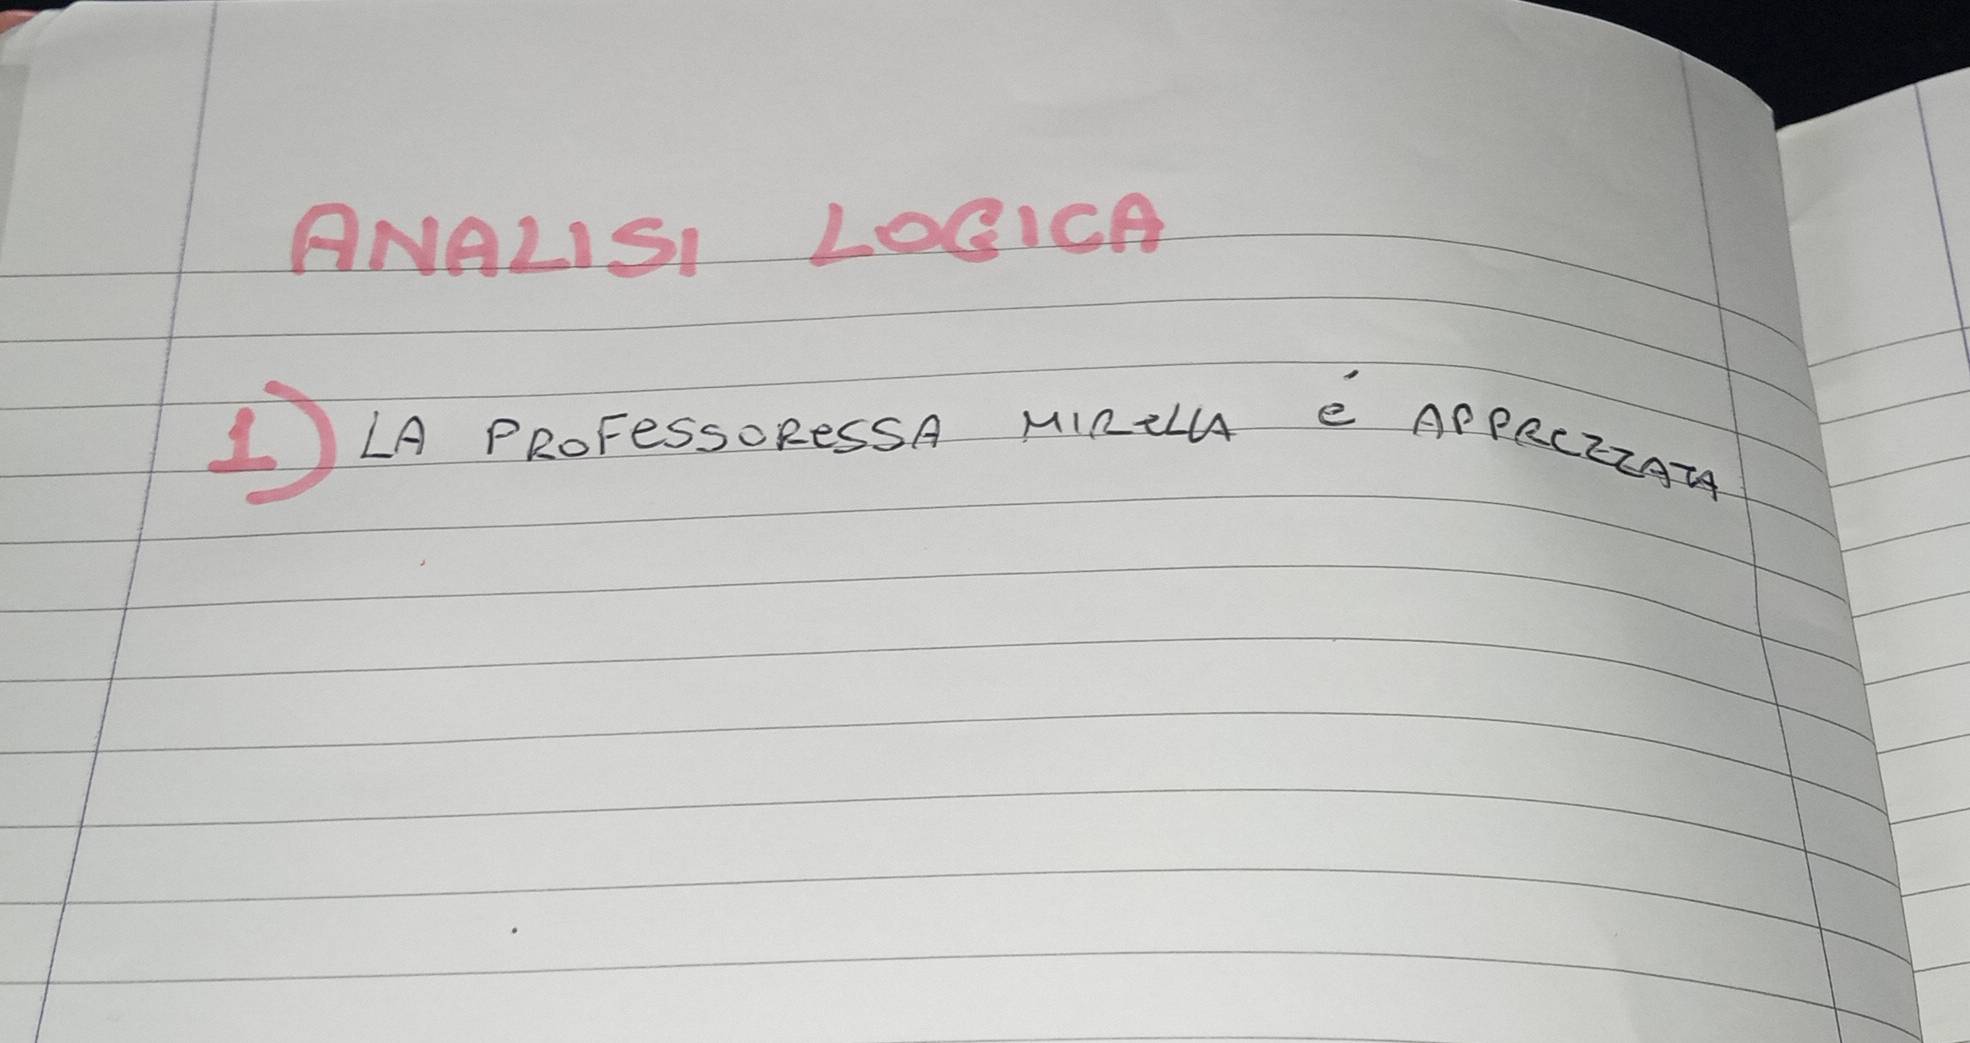 ANALISI LOGICA
1) LA PROFESSORESSA MIRELLA é APPREZZATA